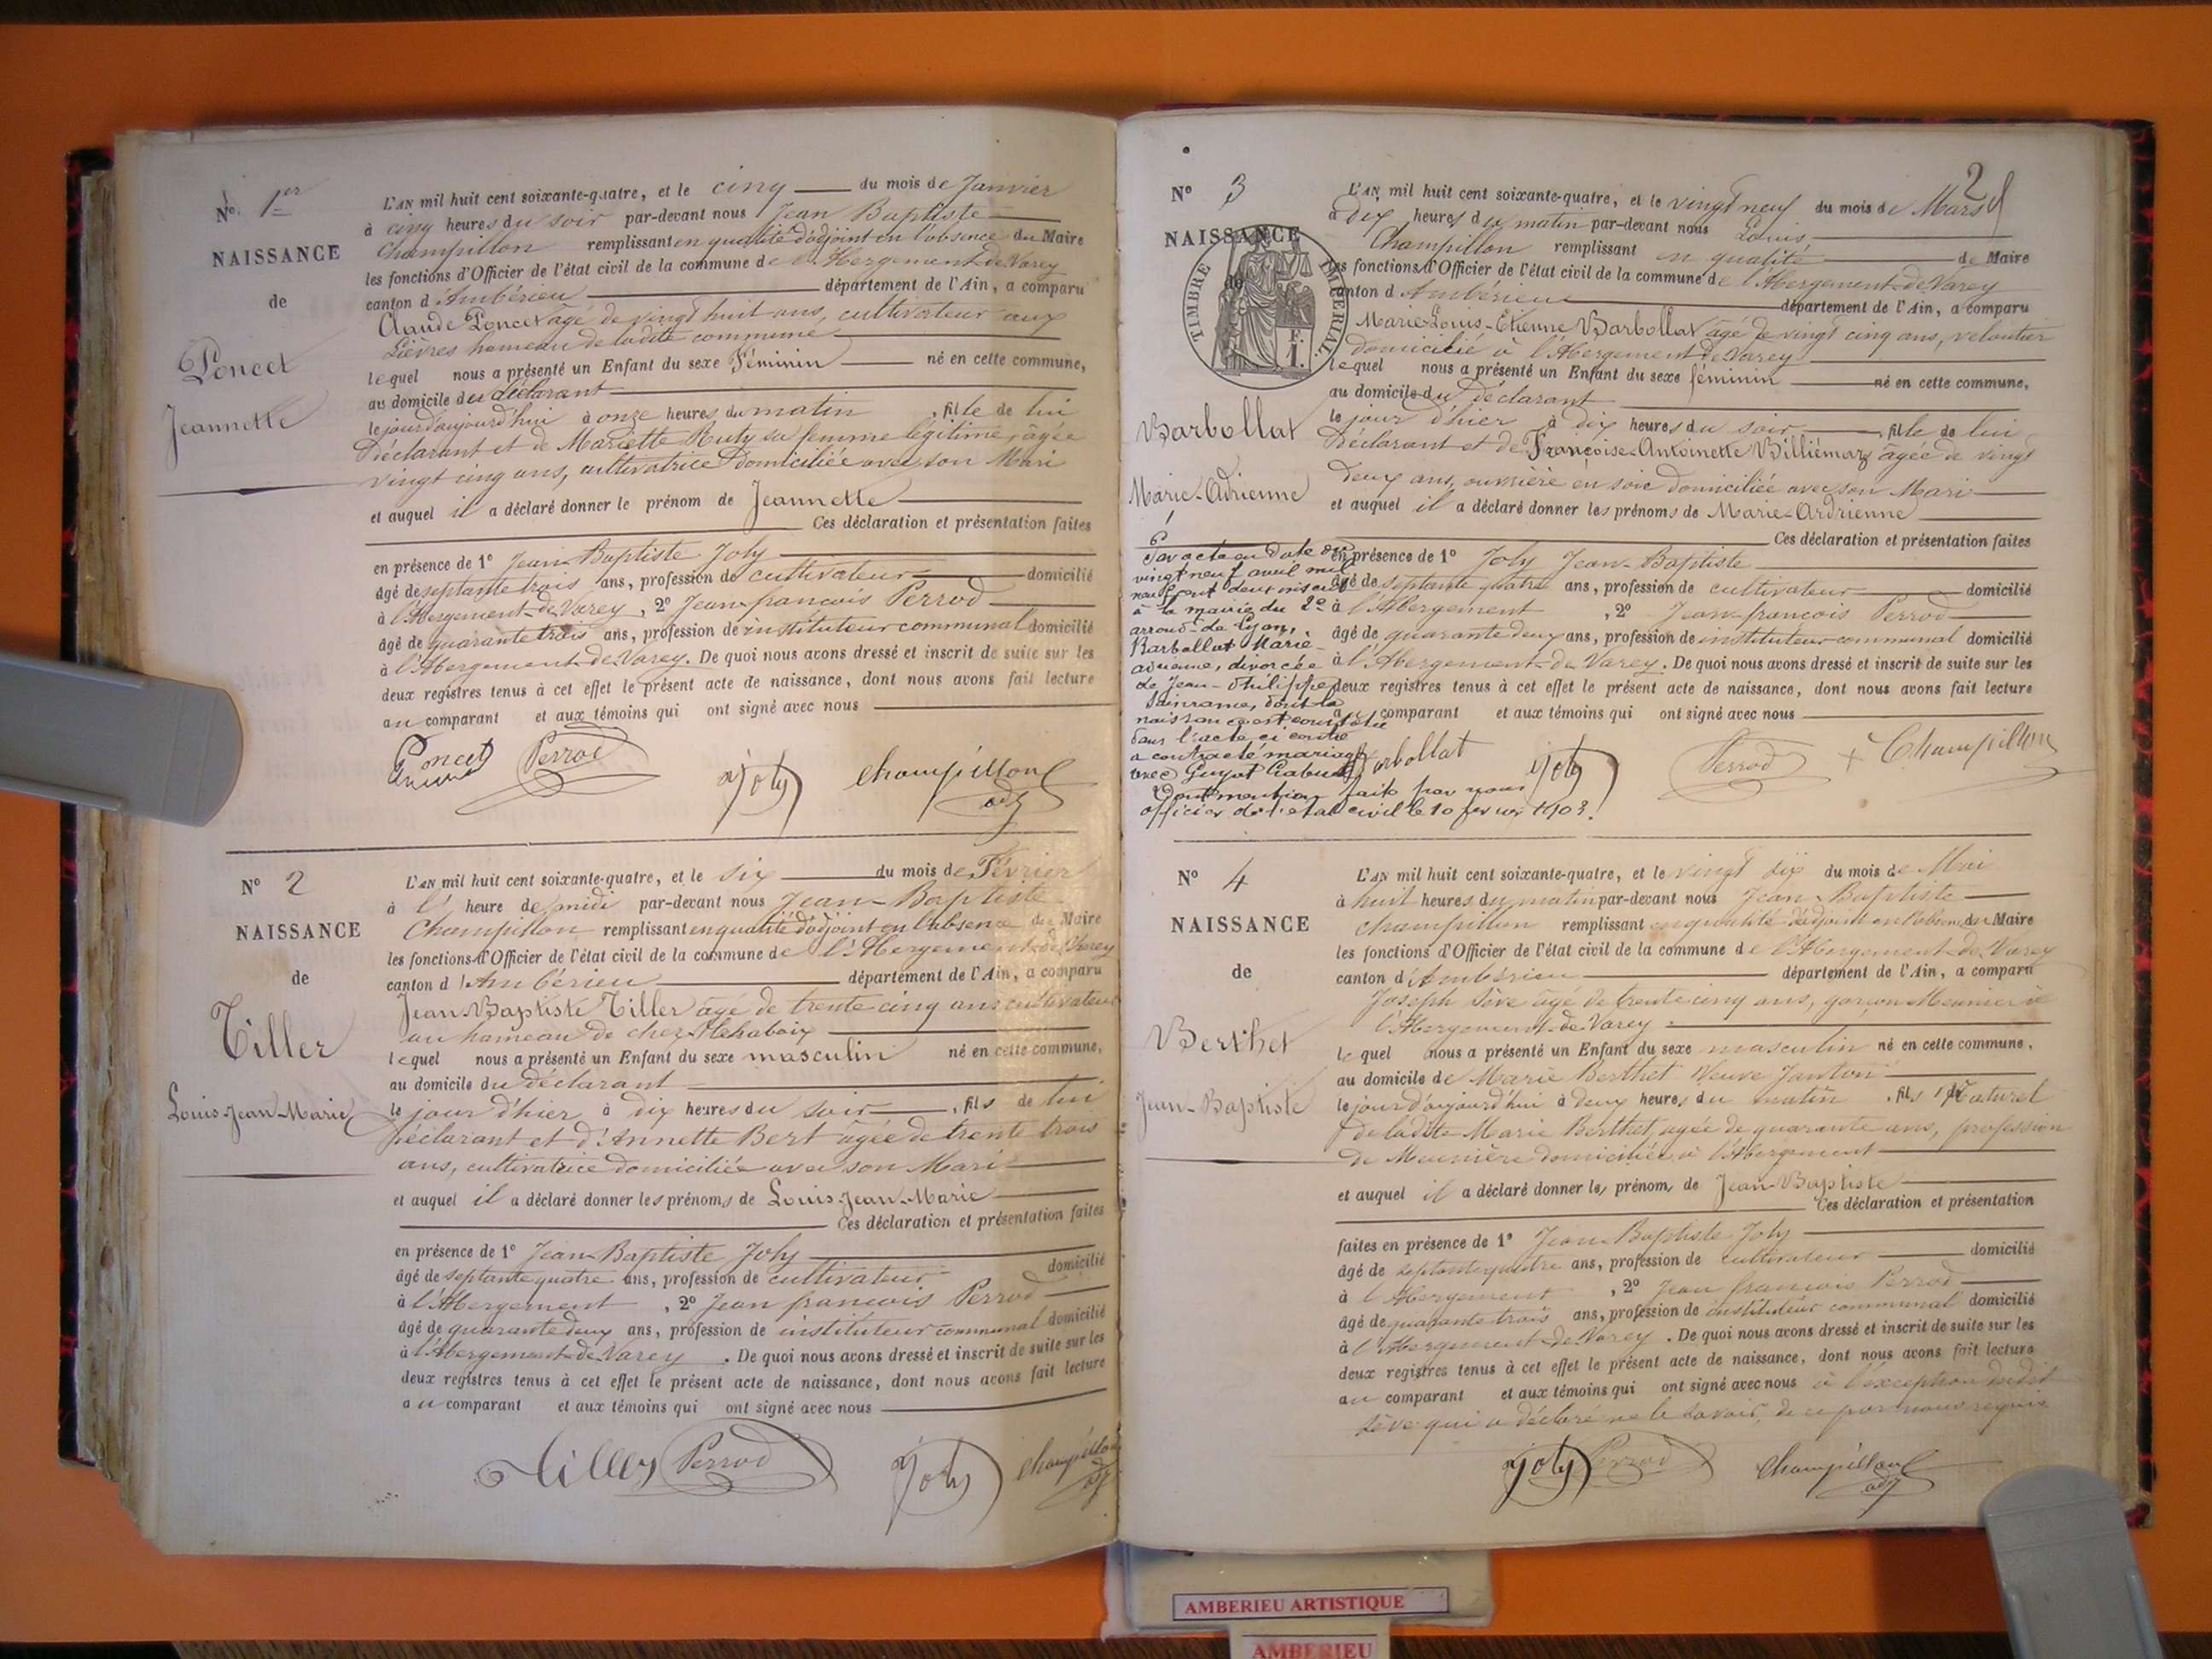 N° 1er
NAISSANCE
de
Poncet
Jeannette
L'AN mil huit cent soixante-quatre, et le cinq du mois de Janvier
à cinq heures du soir par-devant nous Jean Baptiste
Champillon remplissant en qualité d'adjoint en l'absence du Maire
les fonctions d'Officier de l'état civil de la commune de l'Abergement-de-Varey
canton d'Ambérieu département de l'Ain, a comparu
Claude Poncet âgé de vingt huit ans, cultivateur aux
Lièvres hameau de ladite commune
lequel nous a présenté un Enfant du sexe Féminin né en cette commune,
au domicile du déclarant
le jour d'aujourd'hui à onze heures du matin, fille de lui
Déclarant et de Mariette Ruty sa femme légitime, âgée
vingt cinq ans, cultivatrice domiciliée avec son Mari
et auquel il a déclaré donner le prénom de Jeannette
Ces déclaration et présentation faites
en présence de 1° Jean-Baptiste Joly
âgé de septante trois ans, profession de cultivateur domicilié
à l'Abergement-de-Varey, 2° Jean-françois Perrod
âgé de quarante trois ans, profession de instituteur communal domicilié
à l'Abergement-de-Varey. De quoi nous avons dressé et inscrit de suite sur les
deux registres tenus à cet effet le présent acte de naissance, dont nous avons fait lecture
au comparant et aux témoins qui ont signé avec nous
Poncet Perrod Joly Champillon adj
N° 2
NAISSANCE
de
Tiller
Louis-Jean-Marie
L'AN mil huit cent soixante-quatre, et le six du mois de Février
à l' heure de midi par-devant nous Jean-Baptiste
Champillon remplissant en qualité d'adjoint en l'absence du Maire
les fonctions d'Officier de l'état civil de la commune de l'Abergement-de-Varey
canton d'Ambérieu département de l'Ain, a comparu
Jean-Baptiste Tiller âgé de trente cinq ans cultivateur
au hameau de chez
lequel nous a présenté un Enfant du sexe masculin né en cette commune,
au domicile du déclarant
le jour d'hier à dix heures du soir, fils de lui
Déclarant et d'Annette Bert âgée de trente trois
ans, cultivatrice domiciliée avec son Mari
et auquel il a déclaré donner les prénoms de Louis-Jean-Marie
Ces déclaration et présentation faites
en présence de 1° Jean-Baptiste Joly
âgé de septante quatre ans, profession de cultivateur domicilié
à l'Abergement, 2° Jean françois Perrod
âgé de quarante deux ans, profession de instituteur communal domicilié
à l'Abergement-de-Varey. De quoi nous avons dressé et inscrit de suite sur les
deux registres tenus à cet effet le présent acte de naissance, dont nous avons fait lecture
au comparant et aux témoins qui ont signé avec nous
Tiller Perrod Joly Champillon adj
2
N° 3
NAISSANCE
de
TIMBRE IMPERIAL
F. 1.
Barbollat
Marie-Adrienne
L'AN mil huit cent soixante-quatre, et le vingt neuf du mois de Mars
à Dix heures du matin par-devant nous Louis
Champillon remplissant en qualité de Maire
les fonctions d'Officier de l'état civil de la commune de l'Abergement-de-Varey
canton d'Ambérieu département de l'Ain, a comparu
Marie-Louis-Etienne Barbollat âgé de vingt cinq ans, veloutier
domicilié à l'Abergement de Varey
lequel nous a présenté un Enfant du sexe féminin né en cette commune,
au domicile du déclarant
le jour d'hier à dix heures du soir, fille de lui
Déclarant et de Françoise-Antoinette Billiémaz âgée de vingt
deux ans, ouvrière en soie domiciliée avec son Mari
et auquel il a déclaré donner les prénoms de Marie-Ardrienne
Ces déclaration et présentation faites
en présence de 1° Joly Jean-Baptiste
âgé de septante quatre ans, profession de cultivateur domicilié
à l'Abergement, 2° Jean-françois Perrod
âgé de quarante deux ans, profession de instituteur communal domicilié
à l'Abergement-de-Varey. De quoi nous avons dressé et inscrit de suite sur les
deux registres tenus à cet effet le présent acte de naissance, dont nous avons fait lecture
au comparant et aux témoins qui ont signé avec nous
Barbollat Joly Perrod Champillon
Par acte en date du
vingt neuf avril mil
neuf cent deux inscrit
à la mairie du 2e
arrond. de Lyon,
Barbollat Marie-
adrienne, divorcée
de Jean-Philippe
dont la
naissance est constatée
dans l'acte ci contre
a contracté mariage
avec Guyot
Dont mention faite par nous
officier de l'état civil le 10 1903.
N° 4
NAISSANCE
de
Berthet
Jean-Baptiste
L'AN mil huit cent soixante-quatre, et le vingt dix du mois de Mai
à huit heures du matin par-devant nous Jean-Baptiste
champillon remplissant en qualité d'adjoint en l'absence du Maire
les fonctions d'Officier de l'état civil de la commune de l'Abergement-de-Varey
canton d'Ambérieu département de l'Ain, a comparu
Joseph Sève âgé de trente cinq ans, garçon Meunier à
l'Abergement-de-Varey.
lequel nous a présenté un Enfant du sexe masculin né en cette commune,
au domicile de Marie Berthet Veuve Janton
le jour d'aujourd'hui à deux heures du matin, fils Naturel
de ladite Marie Berthet, agée de quarante ans, profession
de Meunière domiciliée à l'Abergement
et auquel il a déclaré donner les prénom, de Jean-Baptiste
Ces déclaration et présentation
faites en présence de 1° Jean-Baptiste Joly
âgé de septante quatre ans, profession de cultivateur domicilié
à l'Abergement, 2° Jean françois Perrod
âgé de quarante trois ans, profession de instituteur communal domicilié
à l'Abergement-de-Varey. De quoi nous avons dressé et inscrit de suite sur les
deux registres tenus à cet effet le présent acte de naissance, dont nous avons fait lecture
au comparant et aux témoins qui ont signé avec nous à l'exception dudit
Sève qui a déclaré ne le savoir, de ce par nous requis
Joly Perrod Champillon adj
AMBERIEU ARTISTIQUE
AMBERIEU